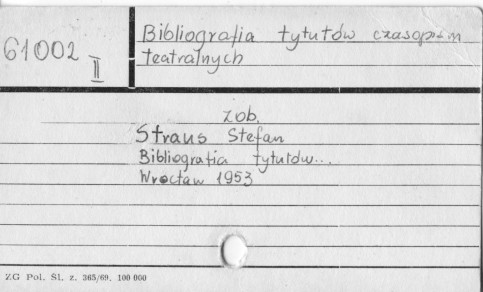 61002
II
Bibliografia tytułów czasopism
teatralnych
zob.
Straus Stefan
Bibliografia tytułów...
Wrocław 1953
ZG Pol. Śl. z. 365/69. 100 000